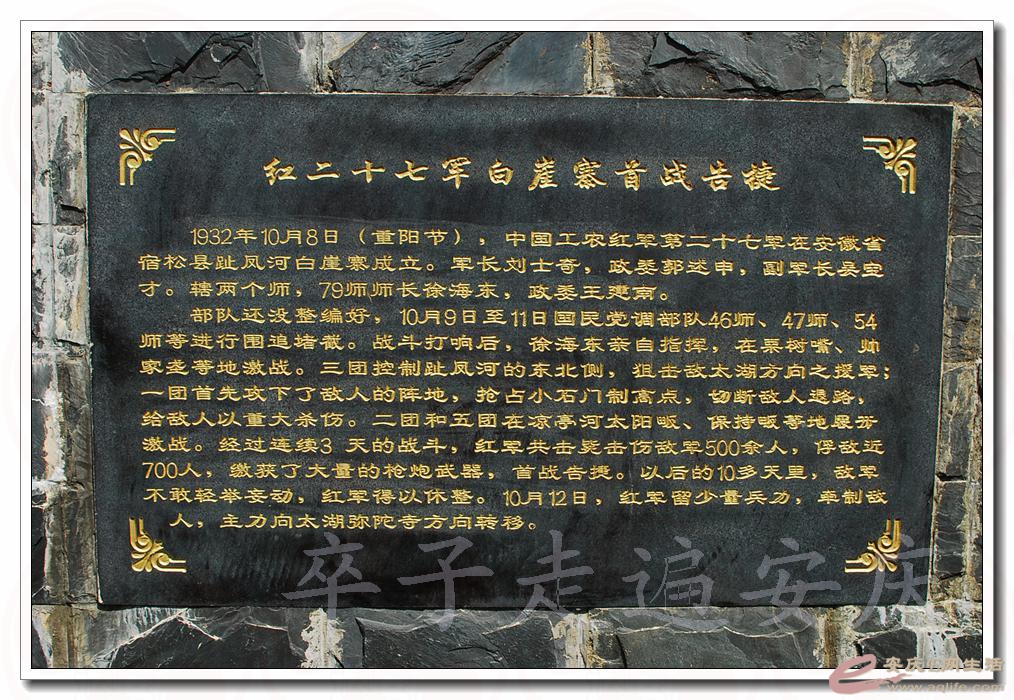 红二十七军白崖寨首战告捷
1932年10月8日（重阳节），中国工农红军第二十七军在安徽省
宿松县趾凤河白崖寨成立。军长刘士奇，政委郭述申，副军长吴宝
才。辖两个师，79师师长徐海东，政委王建南。
部队还没整编好，10月9日至11日国民党调部队46师、47师、54
师等进行围追堵截。战斗打响后，徐海东亲自指挥，在栗树嘴、帅
家垄等地激战。三团控制趾凤河的东北侧，狙击敌太湖方向之援军；
一团首先攻下了敌人的阵地，抢占小石门制高点，切断敌人退路，
给敌人以重大杀伤。二团和五团在凉亭河太阳畈、保持畈等地展开
激战。经过连续3 天的战斗，红军共击毙击伤敌军500余人，俘敌近
700人，缴获了大量的枪炮武器，首战告捷。以后的10多天里，敌军
不敢轻举妄动，红军得以休整。10月12日，红军留少量兵力，牵制敌
人，主力向太湖弥陀寺方向转移。
卒子走遍安庆
安庆E网生活
www.aqlife.com